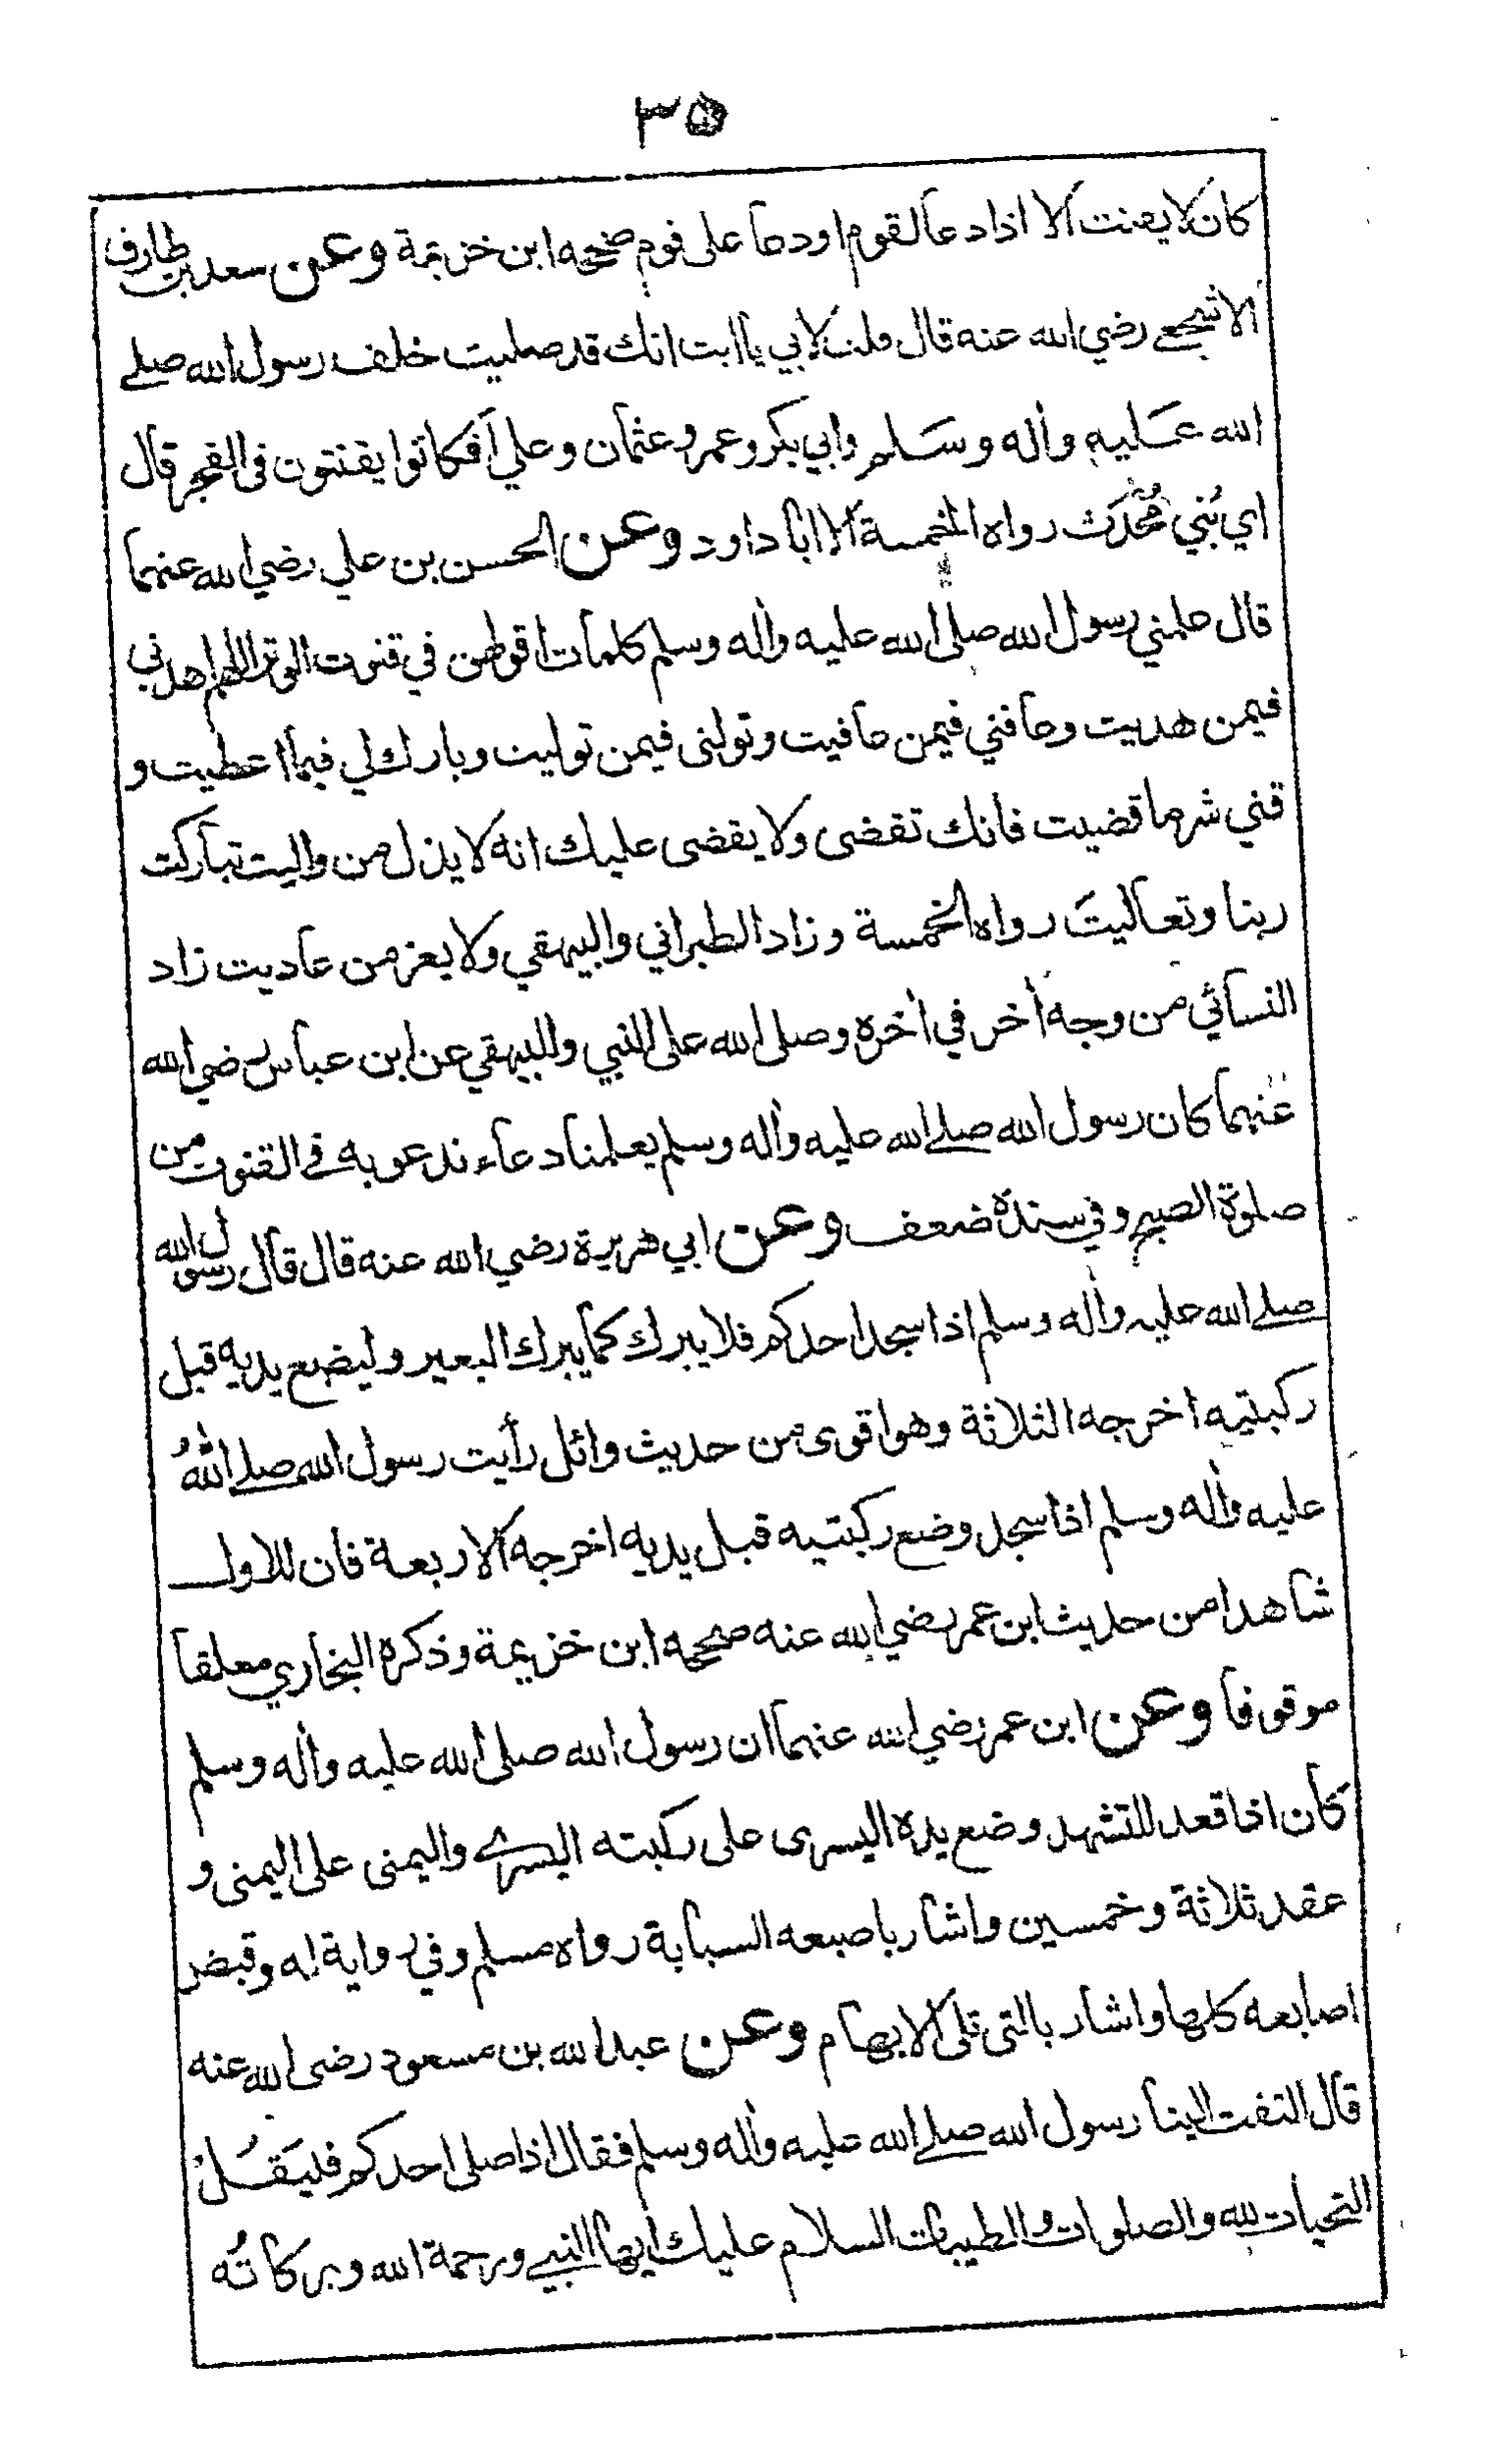 ٣٥
كان لا يقنت الا اذا دعا لقوم او دعا على قوم صححه ابن خزيمة وعن سعد بن طارف
الاشجعے رضي الله عنه قال قلت لابي يا ابت انك قد صليت خلف رسول الله صلے
الله عليه واٰله وسلم وابي بكر وعمر وعثمان وعلي أفكانوا يقنتون فى الفجر قال
اي بُني مُحْدَث رواه الخمسة الا ابا داود وعن الحسن بن علي رضي الله عنهما
قال علمني رسول الله صلى الله عليه واٰله وسلم كلمات اقولهن في قنوت الوتر اللهم اهدني
فيمن هديت وعافني فيمن عافيت وتولنى فيمن توليت وبارك لي فيما اعطيت و
قني شر ما قضيت فانك تقضى ولا يقضى عليك انه لا يذل من واليت تباركت
ربنا وتعاليتَ رواه الخمسة وزاد الطبراني والبيهقي ولا يعز من عاديت زاد
النسائي من وجه اٰخر في اٰخره وصلى الله على النبي والبيهقي عن ابن عباس رضي الله
عنهما كان رسول الله صلے الله عليه واٰله وسلم يعلمنا دعاء ندعو به فے القنوت من
صلوة الصبح وفي سنده ضعف وعن ابي هريرة رضي الله عنه قال قال رسول الله
صلے الله عليه واٰله وسلم اذا سجد احدكم فلا يبرك كما يبرك البعير وليضع يديه قبل
ركبتيه اخرجه الثلاثة وهو اقوى من حديث وائل رأيت رسول الله صلے اللهُ
عليه واٰله وسلم اذا سجد وضع ركبتيه قبل يديه اخرجه الاربعة فان للاول
شاهدا من حديث ابن عمر رضي الله عنه صححه ابن خزيمة وذكره البخاري معلقا
موقوفا وعن ابن عمر رضي الله عنهما ان رسول الله صلى الله عليه واٰله وسلم
كان اذا قعد للتشهد وضع يده اليسرى على ركبته اليسرے واليمنى على اليمنى و
عقد ثلاثة وخمسين واشار باصبعه السبابة رواه مسلم وفي رواية له وقبض
اصابعه كلها واشار بالتى تلى الابهام وعن عبد الله بن مسعود رضى الله عنه
قال التفت الينا رسول الله صلے الله عليه واٰله وسلم فقال اذا صلى احدكم فليَقُلْ
التحيات لله والصلوات والطيبات السلام عليك ايها النبي ورحمة الله وبركاتُه